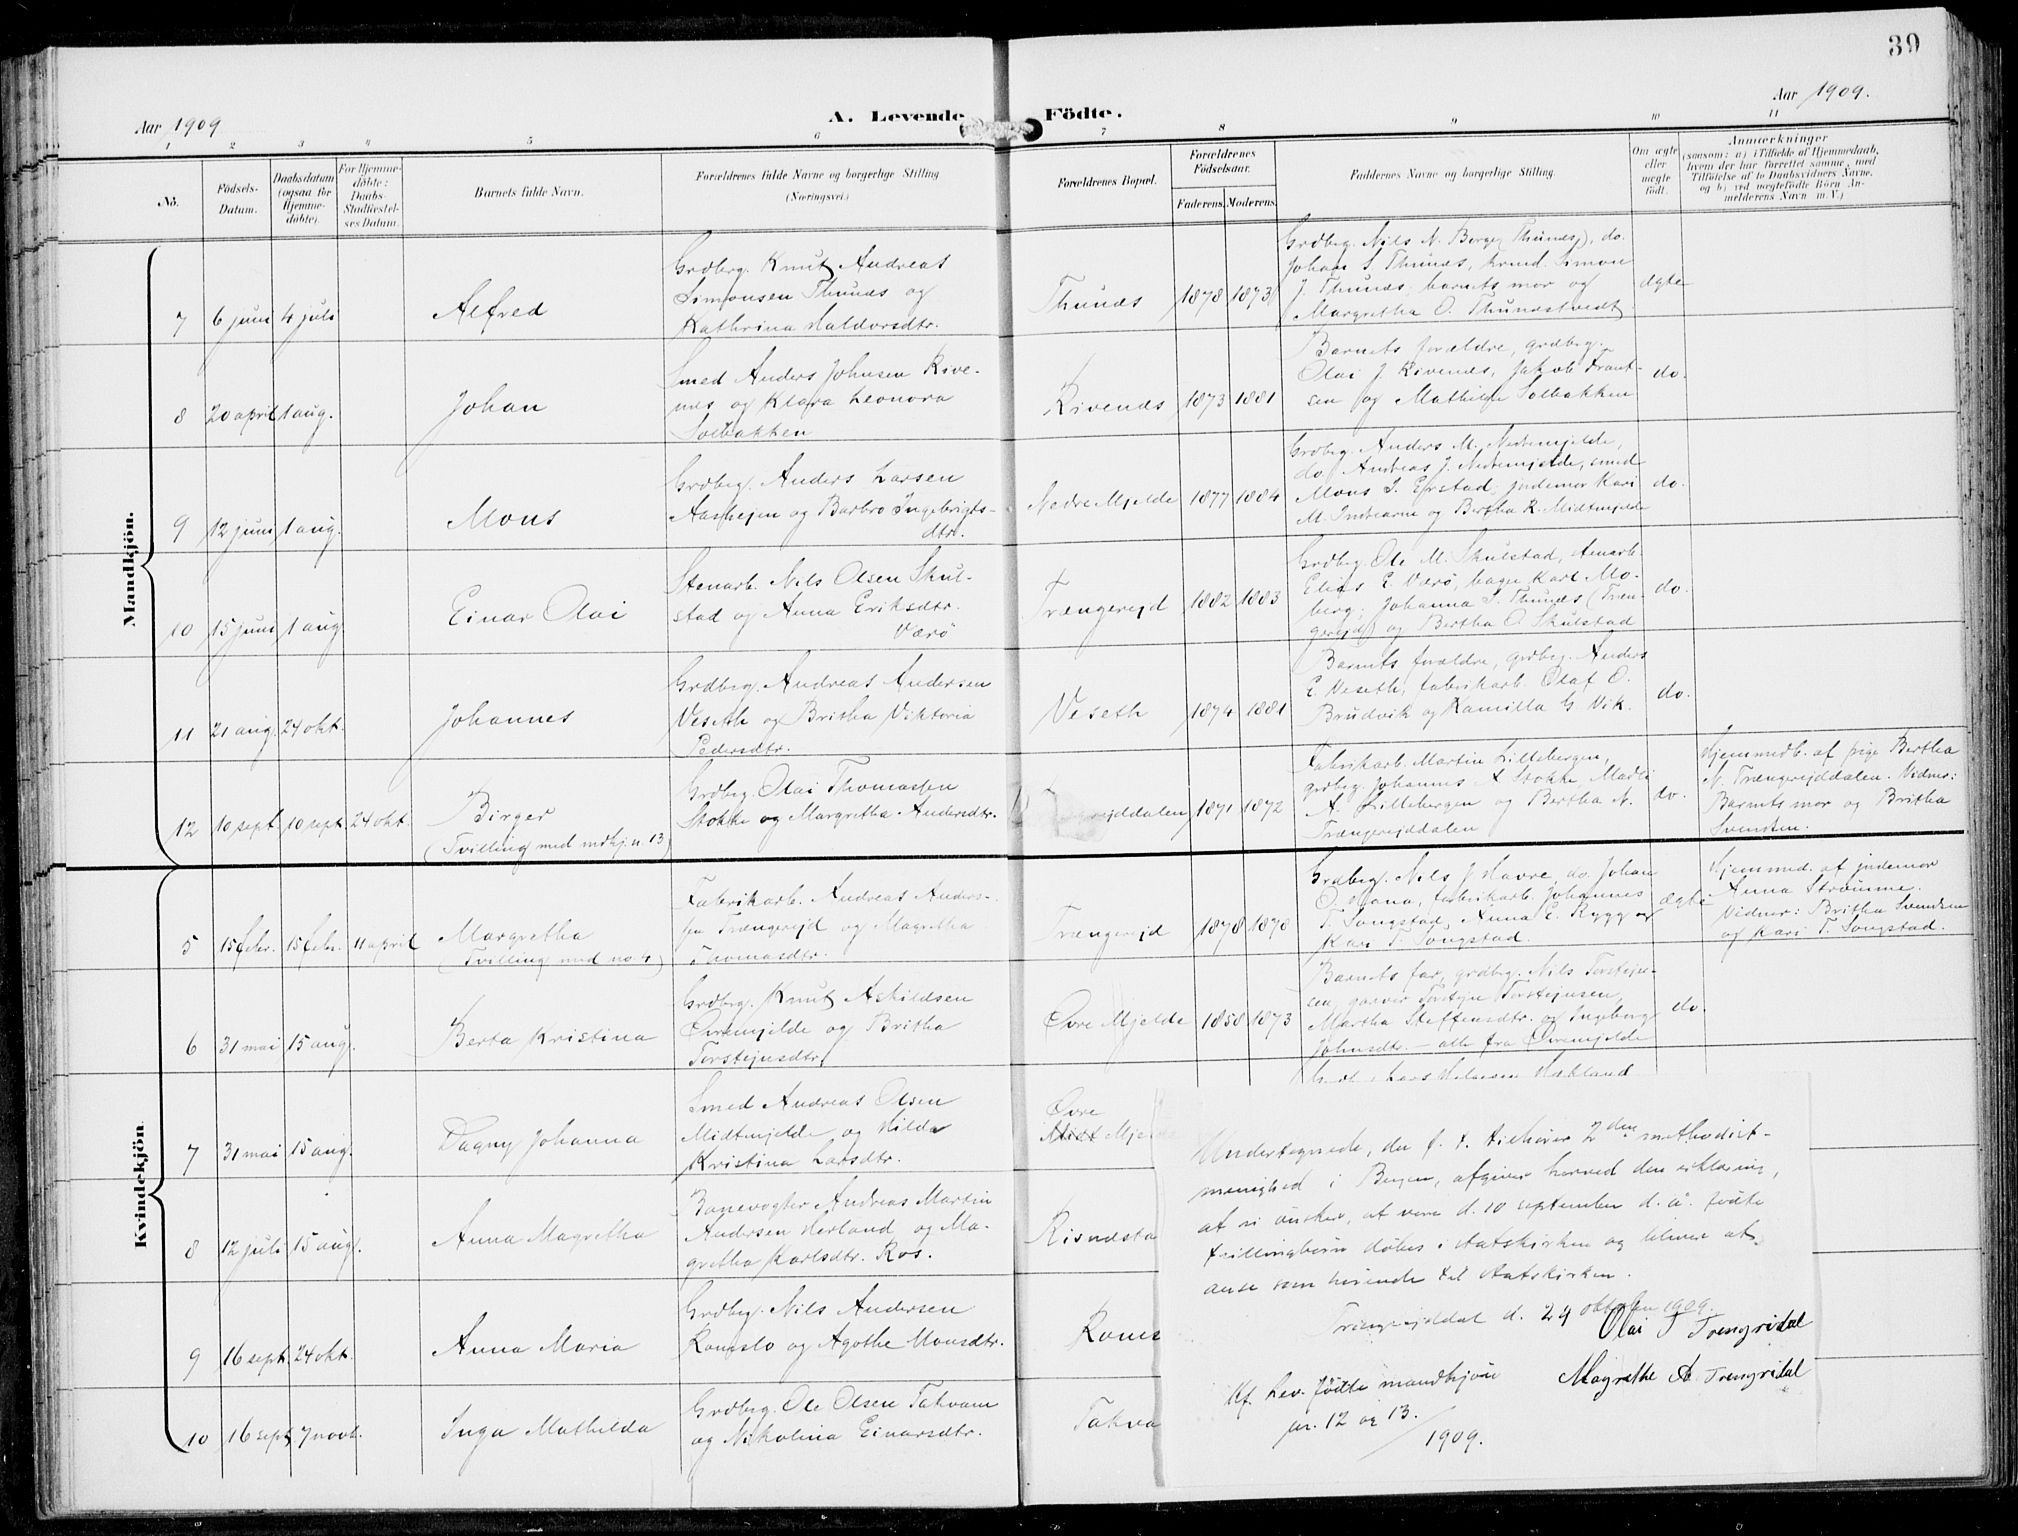 39
Aar 1909
A. Levende
Födte.
Aar 1909.
1 2 3 4 5 6 7 8 9 10 11
No.
Födsels-
Datum.
Daabsdatum
(ogsaa for
Hjemme-
döbte).
For Hjemme-
döbte:
Daabs-
Stadfæstel-
ses Datum.
Barnets fulde Navn.
Forældrenes fulde Navne og borgerlige Stilling
(Næringsvei.)
Forældrenes Bopæl.
Forældrenes
Födselsaar.
Faderens. Moderens.
Faddernes Navne og borgerlige Stilling.
Om ægte
eller
uægte
födt.
Anmærkninger
(saasom: a) i Tilfælde af Hjemmedaab,
hvem der har forrettet samme, med
Tilföielse af to Daabsvidners Navne,
og b) ved uægtefödte Börn An-
melderens Navn m. V.)
Mandkjön.
7 6 juni 4 juli
Alfred
Grdbrg. Knut Andreas
Simonsen Thunæs og
Kathrina Haldorsdtr.
Thunæs 1878 1873
Grdbrg. Nils N. Berge (Thunæs), do.
Johan S. Thunæs, kvmd. Simon
J. Thunæs, barnets mor og
Margretha O. Thunæstvedt
ægte
8 20 april 1 aug.
Johan
Smed Anders Johnsen Rive-
næs og Klara Leonora
Solbakken
Rivenæs 1873 1881
Barnets forældre, grdbrg.
Olai J. Rivenæs, Jakob Frant-
sen og Mathilde Solbakken
do.
9 12 juni 1 aug.
Mons
Grdbrg. Anders Larsen
Aashejm og Barbro Ingebrigts-
dtr.
Nedre Mjelde 1877 1884
Grdbrg. Anders M. Nedremjelde,
do. Andreas J. Nedremjelde, smed
Mons I. Erstad, jordemor Kari
M. Indrearne og Bertha K. Midtmjelde
do.
10 15 juni 1 aug.
Einar Olai
Stenarb. Nils Olsen Skul-
stad og Anna Eriksdtr.
Værö
Trængerejd 1882 1883
Grdbrg. Ole M. Skulstad, stenarb.
Elias E. Værö, bager Karl Mo-
berg, Johanna S. Thunæs (Træn-
gerejd) og Bertha O. Skulstad
do.
11 21 aug. 24 okt.
Johannes
Grdbrg. Andreas Andersen
Veseth og Britha Viktoria
Pedersdtr.
Veseth 1874 1881
Barnets forældre, grdbrg. Anders
E. Veseth, fabrikarb. Olaf O.
Brudvik og Kamilla G. Vik.
do.
12 10 sept. 10 sept. 24 okt.
Birger
(Tvilling med mdkj. n. 13)
Grdbrg. Olai Thomassen
Stokke og Margretha Andersdtr.
Trængerejddalen 1871 1872
Fabrikarb. Martin Lillebergen,
grdbrg. Johannes A. Stokke, Madli
A. Lillebergen og Bertha N.
Trængerejddalen
do.
Hjemmedb. af pige Bertha
N. Trængerejddalen. Vidner:
Barnets mor og Britha
Svendsen.
Kvindekjön
5 15 febr. 15 febr. 11 april
Margretha
(Tvilling med no. 4)
Fabrikarb. Andreas Anders-
fra Trængerejd og Magretha
Thomasdtr.
Trængerejd 1878 1870
Grdbrg. Nils J. Havre, do. Johan
O. Mana, fabrikarb. Johannes
T. Songstad, Anna E. Rygg og
Kari T. Songstad.
ægte
Hjemmed. af jordemor
Anna Strømme.
Vidner: Britha Svendsen
og Kari T. Songstad.
6 31 mai 15 aug.
Berta Kristina
Grdbrg. Knut Askildsen
Övremjelde og Britha
Torstejnsdtr.
Övre Mjelde 1858 1873
Barnets far, grdbrg. Nils Torstejn-
sen, garver Torstejn Torstejnsen,
Martha Steffensdtr. og Ingeborg
Johnsdtr. – alle fra Övremjelde
do.
7 31 mai 15 aug.
Dagny Johanna
Smed Andreas Olsen
Midtmjelde og Hilda
Kristina Larsdtr.
Övre
Midt Mjel
Lars Helgesen Hækland
8 12 juli 15 aug.
Anna Magretha
Banevogter Andreas Martin
Andersen Herland og Ma-
gretha Karlsdtr. Ros.
Risnæsta
9 16 sept. 24 okt.
Anna Maria
Grdbrg. Nils Andersen
Romslo og Agathe Monsdtr.
Roms
10 16 sept. 7 novb.
Inga Mathilda
Grdbrg. Ole Olsen Takvam
og Nikolina Einarsdtr.
Takva
Undertegnede, der f. t. tilhører 2den methodist-
menighed i Bergen, afgiver herved den erklæring,
at vi önsker, at vore d. 10 september d. å. fødte
tvillingbörn døbes i statskirken og bliver at
anse som hørende til statskirken.
Trængerejddal d. 24 oktober 1909.
Olai T Trengridal
Magrethe A Trengridal
Kf. Lev. fødte mandkjøn
nr. 12 og 13.
/1909.